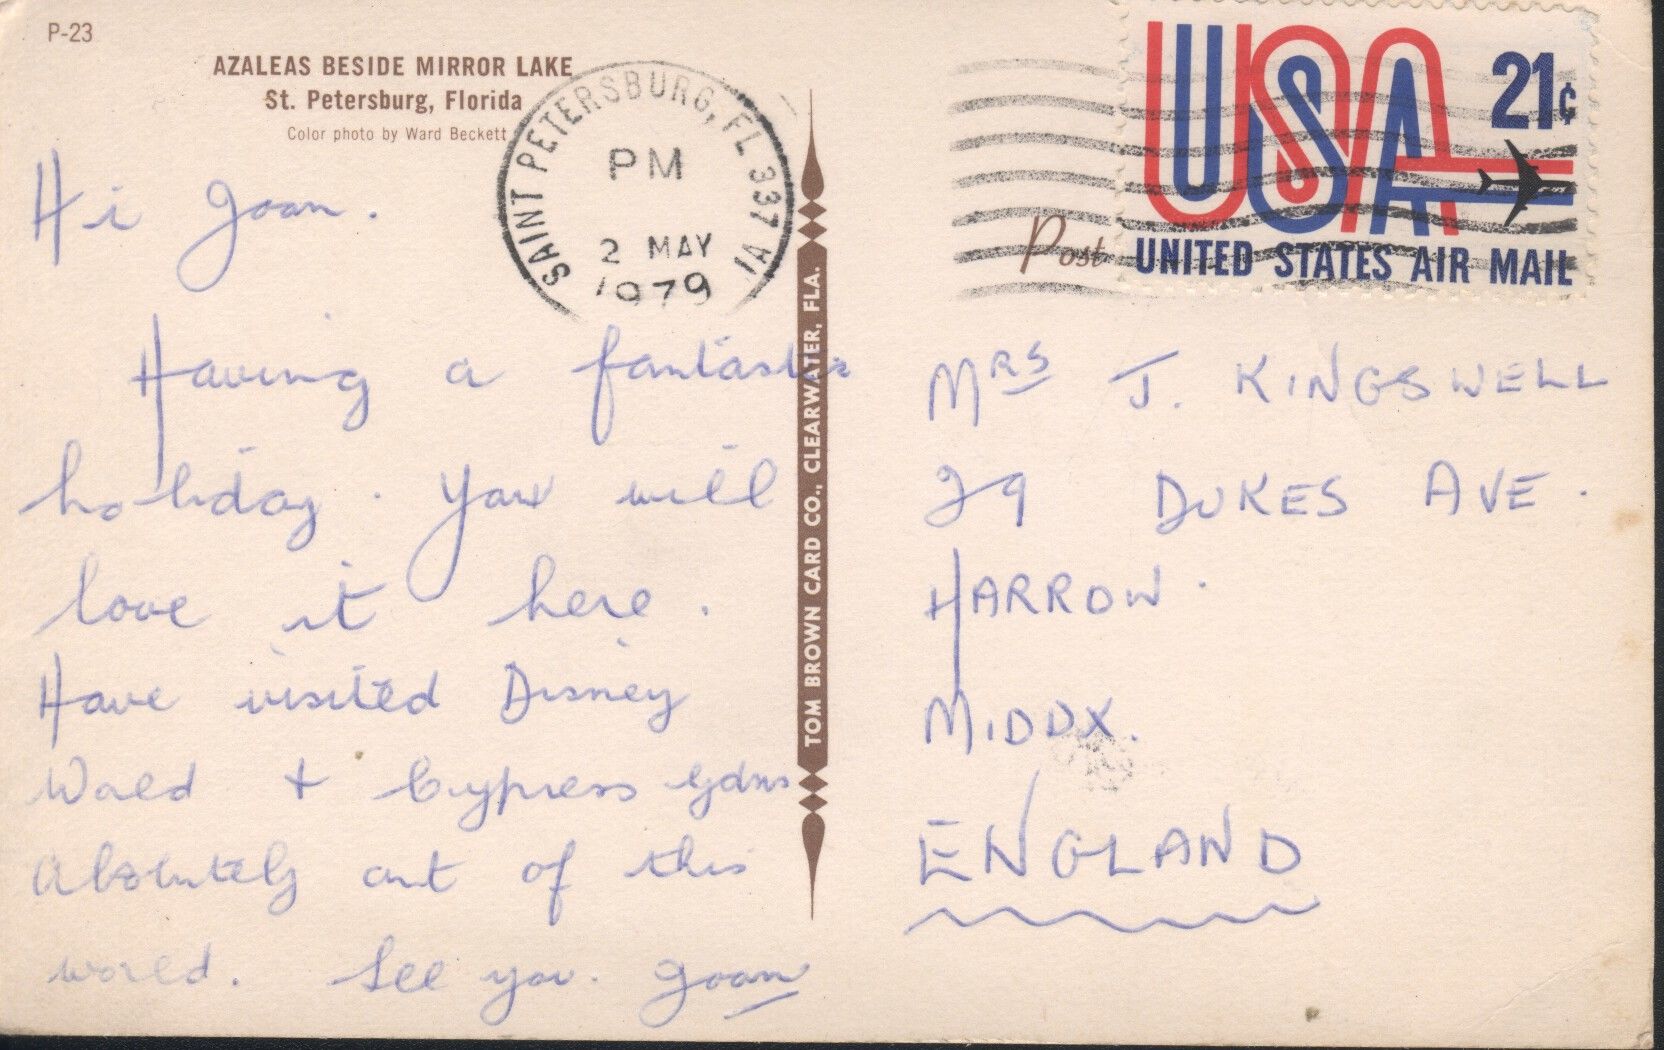 P-23
AZALEAS BESIDE MIRROR LAKE
St. Petersburg, Florida
Color photo by Ward Beckett
SAINT PETERSBURG, FL 337 VI
PM
2 MAY
1979
USA 21¢
UNITED STATES AIR MAIL
Post
TOM BROWN CARD CO., CLEARWATER, FLA.
Hi Joan.
Having a fantastic
holiday. You will
love it here.
Have visited Disney
World + Cypress Gdns
Absolutely out of this
world. See you. Joan
MRS J. KINGSWELL
29 DUKES AVE.
HARROW.
MIDDX.
ENGLAND